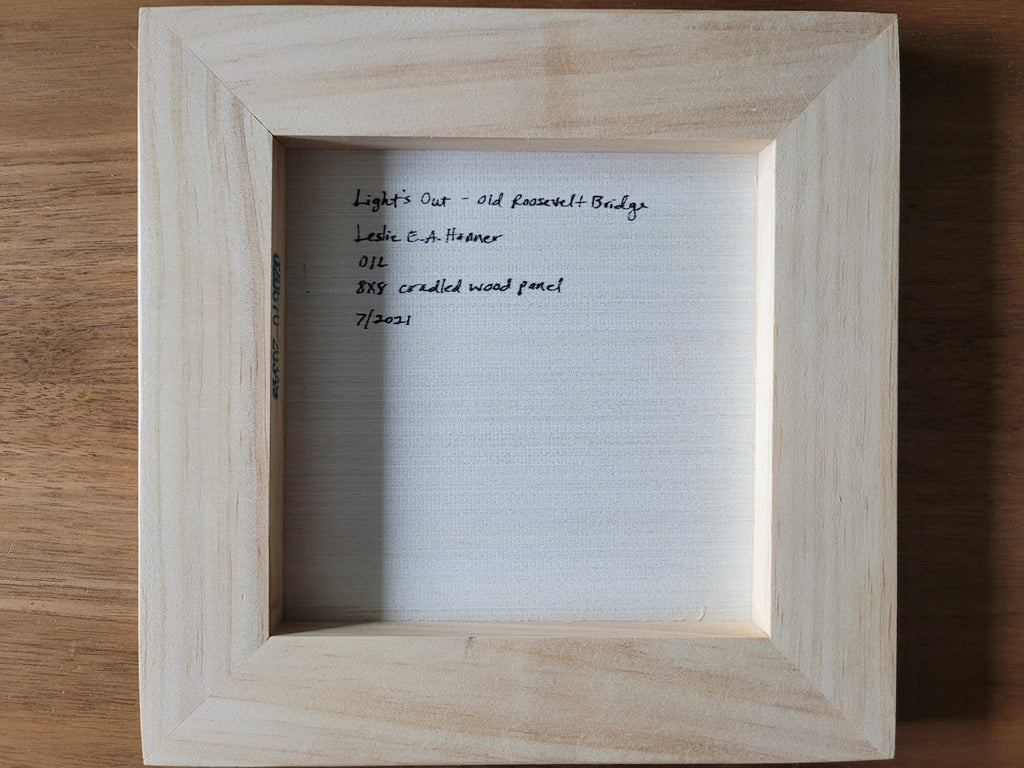 Light's Out - Old Roosevelt Bridge
Leslie E.A. Hanner
OIL
8X8 cradled wood panel
7/2021